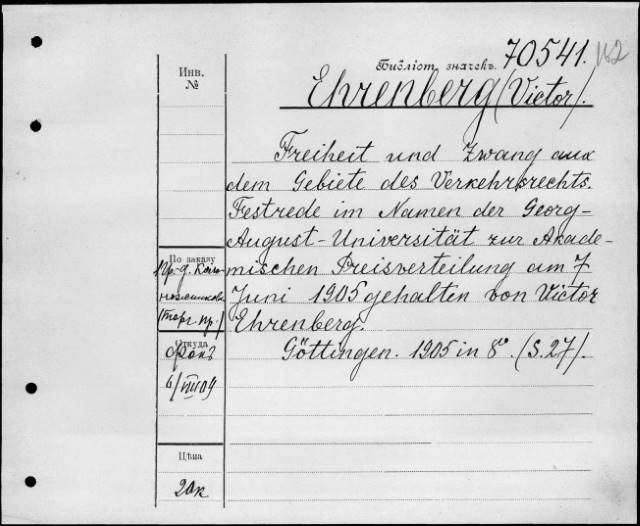 Библіот. значекъ. 70541.
Инв.
№
Ehrenberg (Victor).
Freiheit und Zwang aux
dem Gebiete des Verkehrsrechts.
Festrede im Namen der Georg-
August-Universität zur Akade-
mischen Preisverteilung am 7
Juni 1905 gehalten von Victor
Ehrenberg.
Göttingen. 1905 in 8º. (S. 27).
По заказу
Пр-д.
(торг. пр.)
Откуда
6/VIII 09
Цѣна
20к